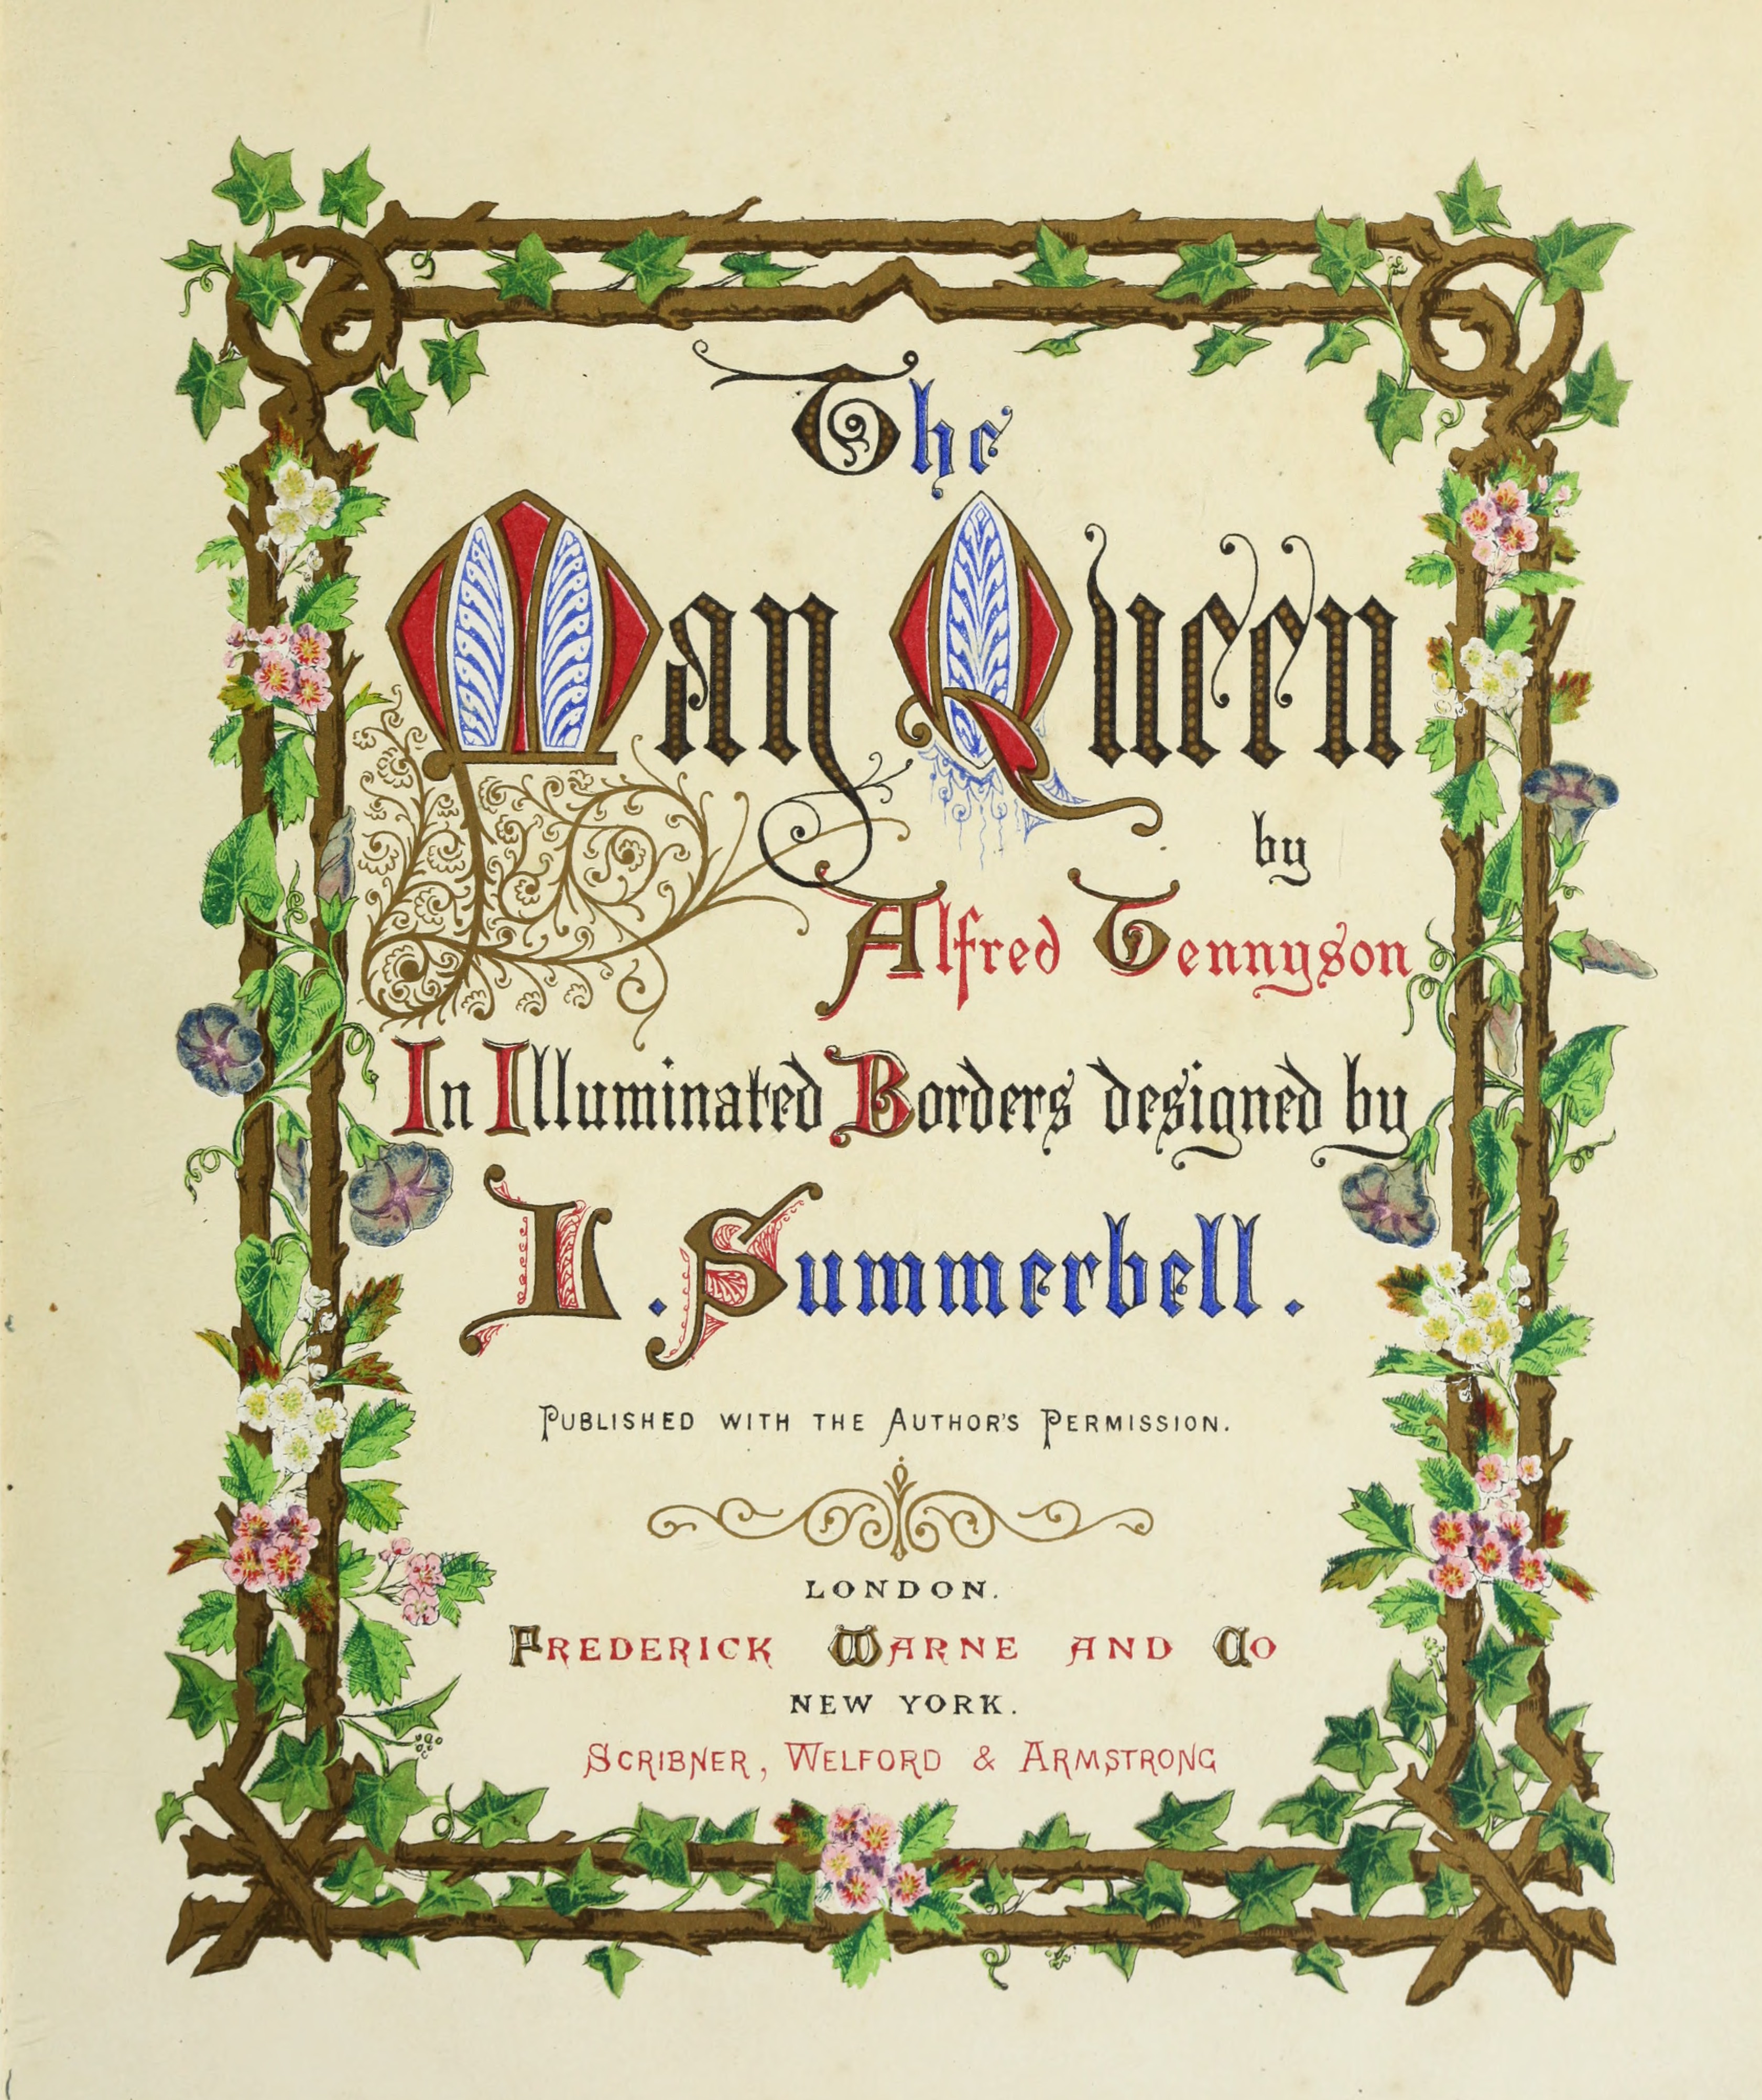 The
May Queen
by
Alfred Tennyson
In Illuminated Borders designed by
L. Summerbell.
PUBLISHED WITH THE AUTHOR'S PERMISSION.
LONDON.
FREDERICK WARNE AND CO
NEW YORK.
SCRIBNER, WELFORD & ARMSTRONG